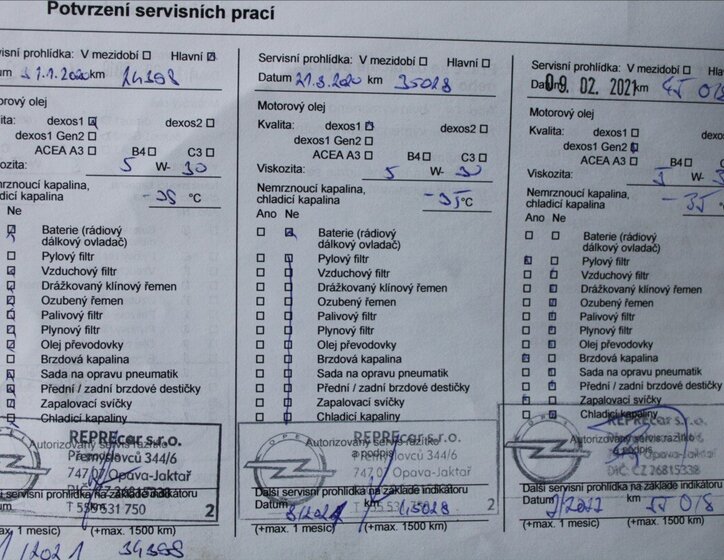 Potvrzení servisních prací
visní prohlídka: V mezidobí Hlavní
um 31.1.2020 km 24398
orový olej
lita: dexos1 dexos2
dexos1 Gen2
ACEA A3 B4 C3
kozita: 5 W- 30
mrznoucí kapalina,
adicí kapalina -35 °C
Ne
Baterie (rádiový
dálkový ovladač)
Pylový filtr
Vzduchový filtr
Drážkovaný klínový řemen
Ozubený řemen
Palivový filtr
Plynový filtr
Olej převodovky
Brzdová kapalina
Sada na opravu pneumatik
Přední / zadní brzdové destičky
Zapalovací svíčky
Chladicí kapaliny
Autorizovaný servis razítko
OPEL
REPREcar s.r.o.
Přemyslovců 344/6
747 07 Opava-Jaktař
T 555 531 750 2
ší servisní prohlídka na základě indikátoru
max. 1 měsíc) (+max. 1500 km)
1/2021 34398
Servisní prohlídka: V mezidobí Hlavní
Datum 21.8.2020 km 35028
Motorový olej
Kvalita: dexos1 dexos2
dexos1 Gen2
ACEA A3 B4 C3
Viskozita: 5 W- 30
Nemrznoucí kapalina,
chladicí kapalina -35 °C
Ano Ne
Baterie (rádiový
dálkový ovladač)
Pylový filtr
Vzduchový filtr
Drážkovaný klínový řemen
Ozubený řemen
Palivový filtr
Plynový filtr
Olej převodovky
Brzdová kapalina
Sada na opravu pneumatik
Přední / zadní brzdové destičky
Zapalovací svíčky
Chladicí kapaliny
Autorizovaný servis razítko
a podpis
OPEL
REPREcar s.r.o.
Přemyslovců 344/6
747 07 Opava-Jaktař
Další servisní prohlídka na základě indikátoru
Datum 8/2021 km 45028
2
(+max. 1 měsíc) (+max. 1500 km)
Servisní prohlídka: V mezidobí Hlavní
Datum 09. 02. 2021 km 45 018
Motorový olej
Kvalita: dexos1 dexos2
dexos1 Gen2
ACEA A3 B4
Viskozita: 5 W- 3
Nemrznoucí kapalina,
chladicí kapalina -35 °C
Ano Ne
Baterie (rádiový
dálkový ovladač)
Pylový filtr
Vzduchový filtr
Drážkovaný klínový řemen
Ozubený řemen
Palivový filtr
Plynový filtr
Olej převodovky
Brzdová kapalina
Sada na opravu pneumatik
Přední / zadní brzdové destičky
Zapalovací svíčky
Chladicí kapaliny
Autorizovaný servis razítko
a podpis
OPEL
REPREcar s.r.o.
Opava-Jaktař
DIČ: CZ 26815338
Další servisní prohlídka na základě indikátoru
Datum 2/2022 km 55 018
(+max. 1 měsíc) (+max. 1500 km)